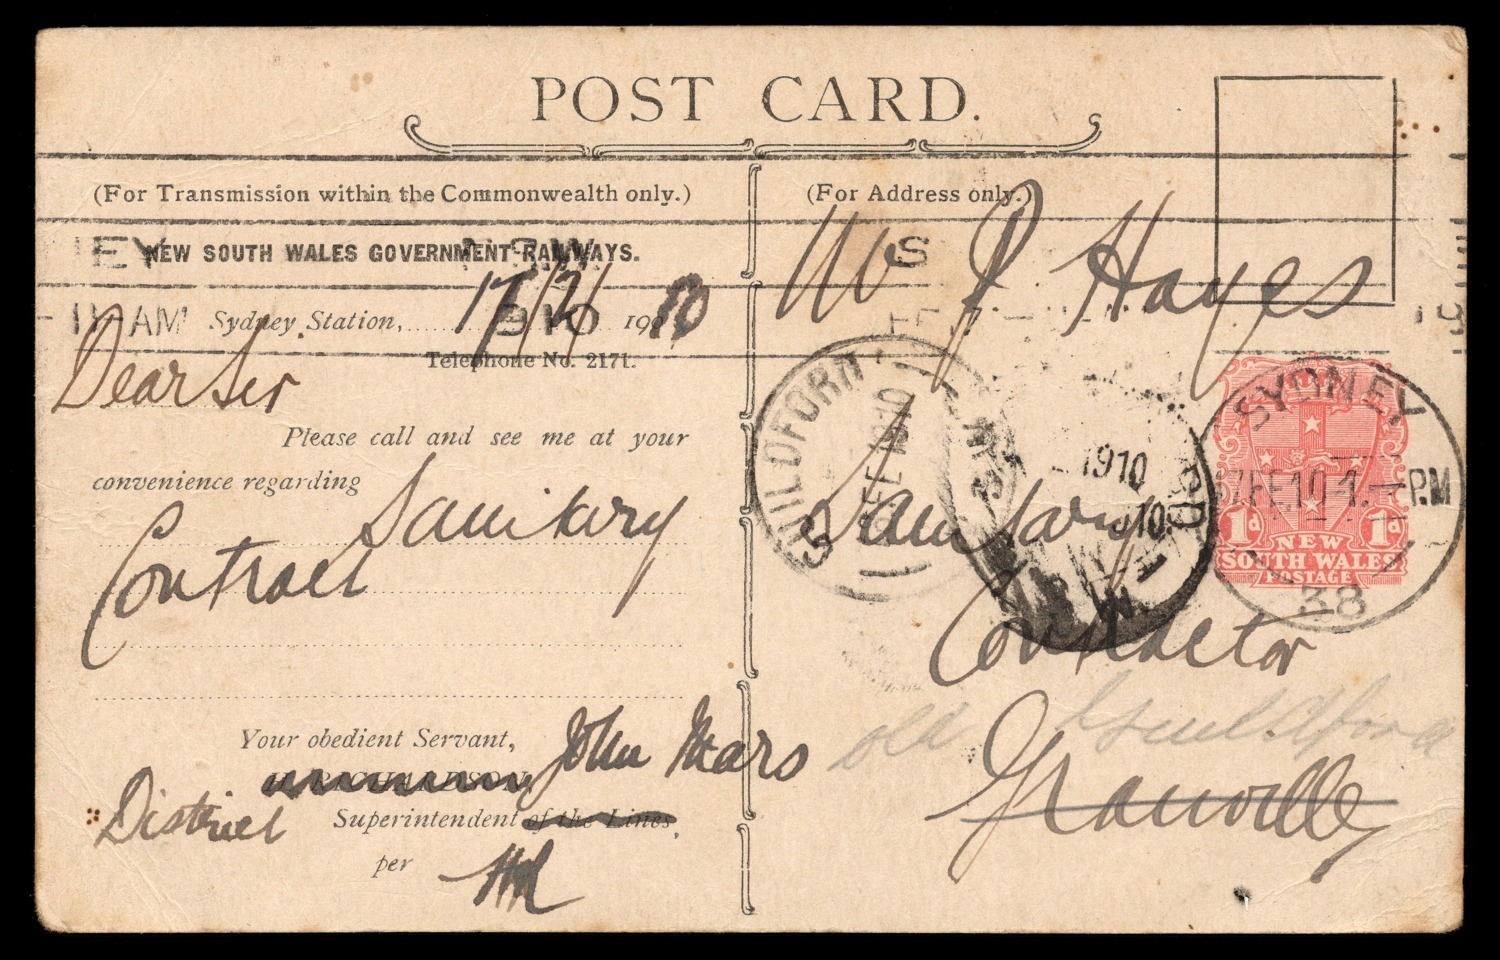 POST CARD.
(For Transmission within the Commonwealth only.)
NEW SOUTH WALES GOVERNMENT RAILWAYS.
Sydney Station, 17/2/ 1910
Telephone No. 2171.
Dear Sir
Please call and see me at your
convenience regarding
Sanitary
Contract
Your obedient Servant,
H. RICHARDSON,
John Mears
District Superintendent of the Lines,
per
(For Address only.)
Mr J Hayes
Sanitary
Contractor
old Guildford
Granville
GUILDFORD
FE 1910
N.S.W
1910
SYDNEY
17 FE 10 1. PM
38
1d 1d
NEW
SOUTH WALES
POSTAGE
EY
N.S.W
11 AM